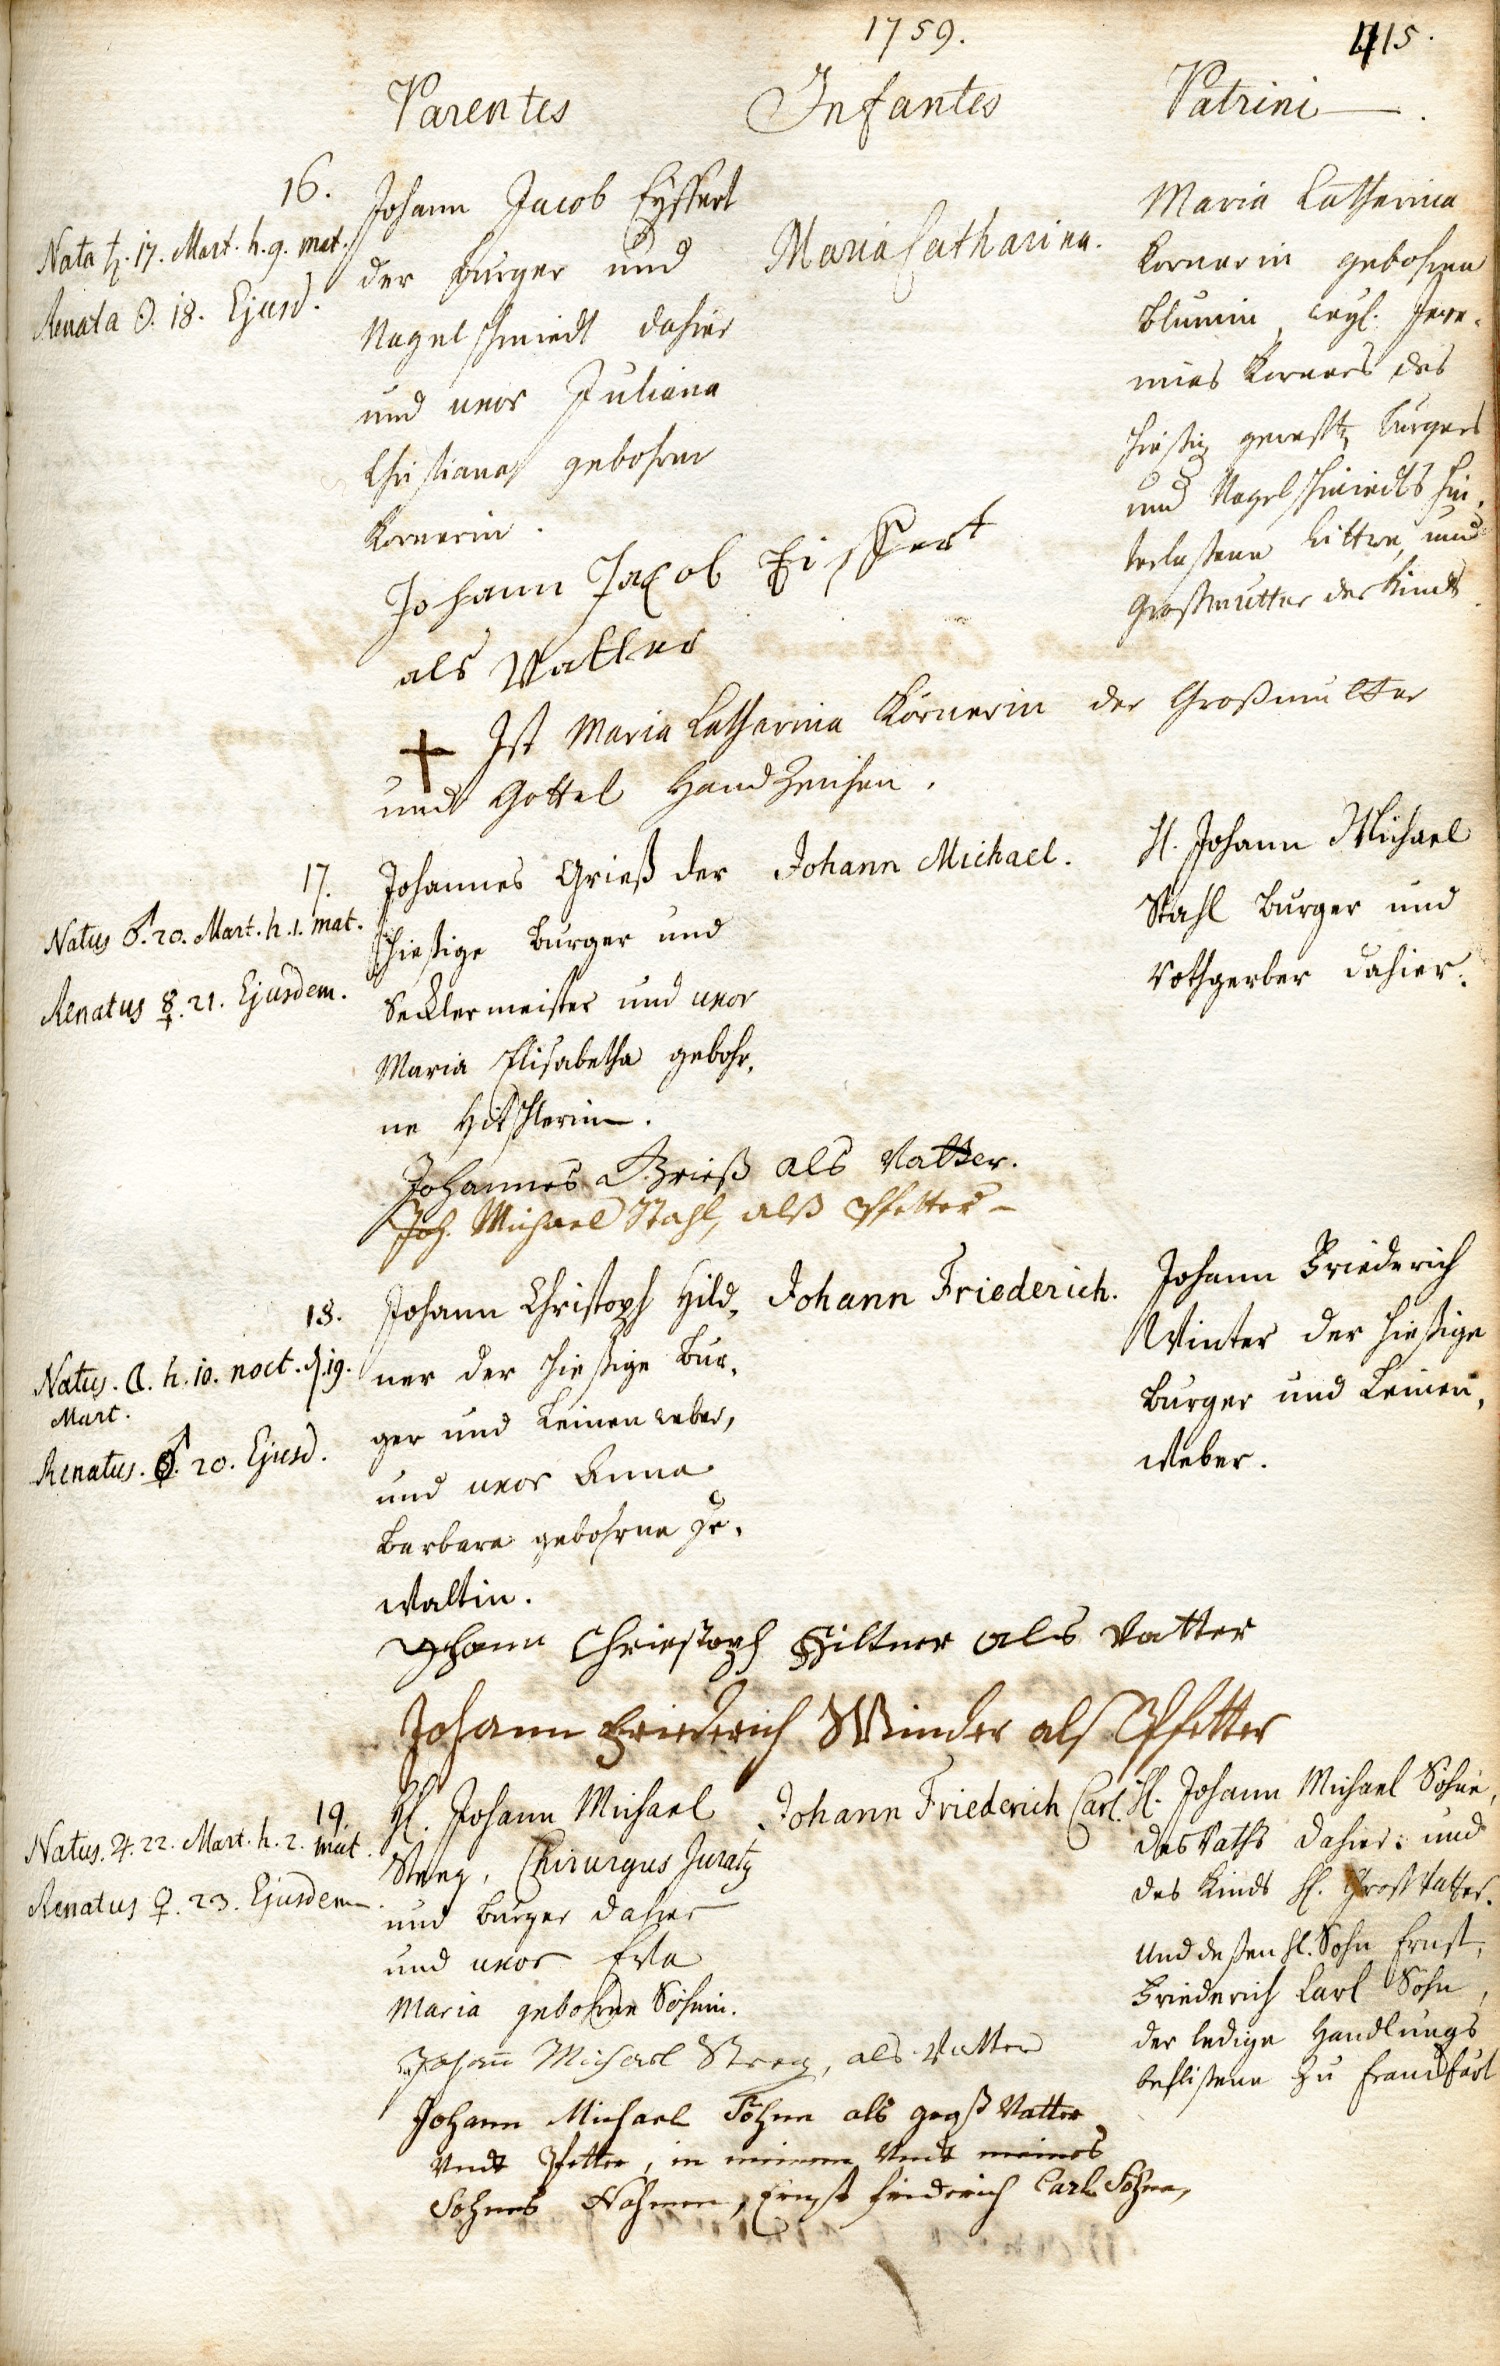 1759.
415.
Parentes
Infantes
Patrini
16.
Nata ♄. 17. Mart. h. 9. mat.
Renata ☉. 18. Ejusd.
Johann Jacob Eyssert
der burger und
Nagelschmiedt dahier
und uxor Juliana
Christiana gebohrne
Kornerin.
Maria Catharina.
Maria Catharina
Kornerin gebohrne
Blumin, weyl. Jere-
mias Korners des
hiesig geweßt. burgers
und Nagelschmiedts hin-
terlaßene Wittwe, und
Großmutter des Kinds.
Johann Jacob Eissert
als Vatter
Ist Maria Catharina Körnerin der Großmutter
und Gottel Handzeichen.
17.
Natus ♂. 20. Mart. h. 1. mat.
Renatus ☿. 21. Ejusdem.
Johannes Grieß der
hiesige burger und
Secklermeister und uxor
Maria Elisabetha gebohr-
ne Hitschlerin.
Johann Michael.
H. Johann Michael
Stahl burger und
Rothgerber dahier.
Johannes Grieß als Vatter.
Joh. Michael Stahl, alß Pfetter
18.
Natus. ☾. h. 10. noct. d. 19.
Mart.
Renatus. ♂. 20. Ejusd.
Johann Christoph Hild-
ner der hiesige bur-
ger und Leinenweber,
und uxor Anna
Barbara gebohrne Ge-
waltin.
Johann Friederich.
Johann Friederich
Winter der hiesige
burger und Leinen-
weber.
Johann Christoph Hiltner als Vatter
Johann Friederich Winder als Pfetter
19.
Natus. ♃. 22. Mart. h. 2. mat.
Renatus ♀. 23. Ejusdem.
H. Johann Michael
Steeg, Chirurgus Jurat9
und burger dahier
und uxor Eva
Maria gebohrne Söhnin.
Johann Friederich Carl.
H. Johann Michael Söhne,
des Raths dahier: und
des Kinds H. Großvatter.
Und deßen H. Sohn Ernst,
Friederich Carl Söhn,
der ledige Handlungs
beflißene zu Franckfurt
Johan̄ Michael Steeg, als Vatter
Johann Michael Söhne als groß Vatter
Undt Pfetter, in meinem Undt meines
Sohnes Nahmen, Ernst friederich Carl Söhne,